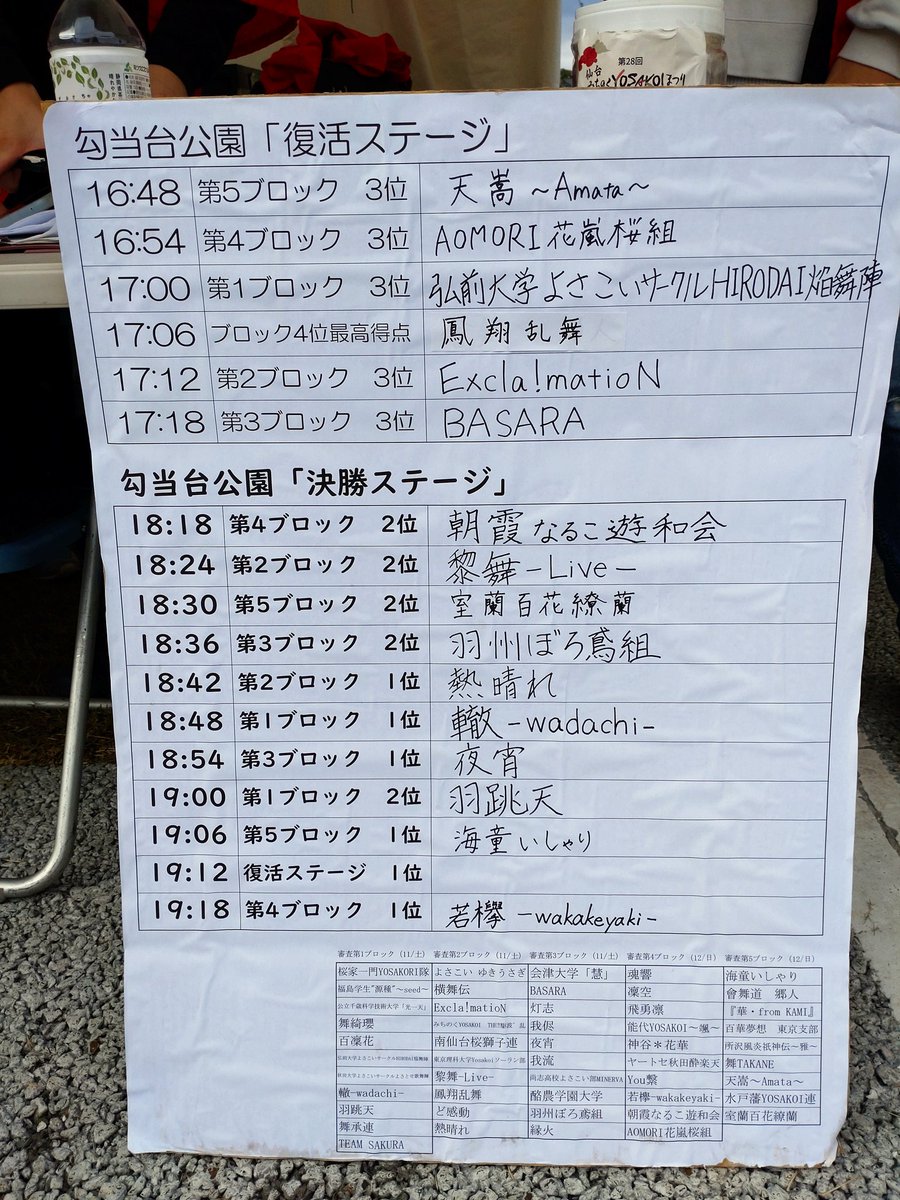 第28回
仙台
みちのくYOSAKOIまつり
勾当台公園「復活ステージ」
16:48 第5ブロック 3位 天嵩～Amata～
16:54 第4ブロック 3位 AOMORI花嵐桜組
17:00 第1ブロック 3位 弘前大学よさこいサークルHIRODAI焔舞陣
17:06 ブロック4位最高得点 鳳翔乱舞
17:12 第2ブロック 3位 Excla!matioN
17:18 第3ブロック 3位 BASARA
勾当台公園「決勝ステージ」
18:18 第4ブロック 2位 朝霞なるこ遊和会
18:24 第2ブロック 2位 黎舞-Live-
18:30 第5ブロック 2位 室蘭百花繚蘭
18:36 第3ブロック 2位 羽州ぼろ鳶組
18:42 第2ブロック 1位 熱晴れ
18:48 第1ブロック 1位 轍-wadachi-
18:54 第3ブロック 1位 夜宵
19:00 第1ブロック 2位 羽跳天
19:06 第5ブロック 1位 海童いしゃり
19:12 復活ステージ 1位
19:18 第4ブロック 1位 若欅-wakakeyaki-
審査第1ブロック（11/土） 審査第2ブロック（11/土） 審査第3ブロック（11/土） 審査第4ブロック（12/日） 審査第5ブロック（12/日）
桜家一門YOSAKORI隊 よさこい ゆきうさぎ 会津大学「慧」 魂響 海童いしゃり
福島学生"源種"～seed～ 横舞伝 BASARA 凜空 會舞道 郷人
公立千歳科学技術大学「光一天」 Excla!matioN 灯志 飛勇凛 『華・from KAMI』
舞綺瓔 みちのくYOSAKOI THE!駆波 乱 我侭 能代YOSAKOI～颯～ 百華夢想 東京支部
百凜花 南仙台桜獅子連 夜宵 神谷＊花華 所沢風炎祇神伝～雅～
弘前大学よさこいサークルHIRODAI焔舞陣 東京理科大学Yosakoiソーラン部 我流 ヤートセ秋田酔楽天 舞TAKANE
秋田大学よさこいサークルよさとせ歌舞輝 黎舞-Live- 尚志高校よさこい部MINERVA You繋 天嵩～Amata～
轍-wadachi- 鳳翔乱舞 酪農学園大学 若欅-wakakeyaki- 水戸藩YOSAKOI連
羽跳天 ど感動 羽州ぼろ鳶組 朝霞なるこ遊和会 室蘭百花繚蘭
舞承連 熱晴れ 縁火 AOMORI花嵐桜組
TEAM SAKURA